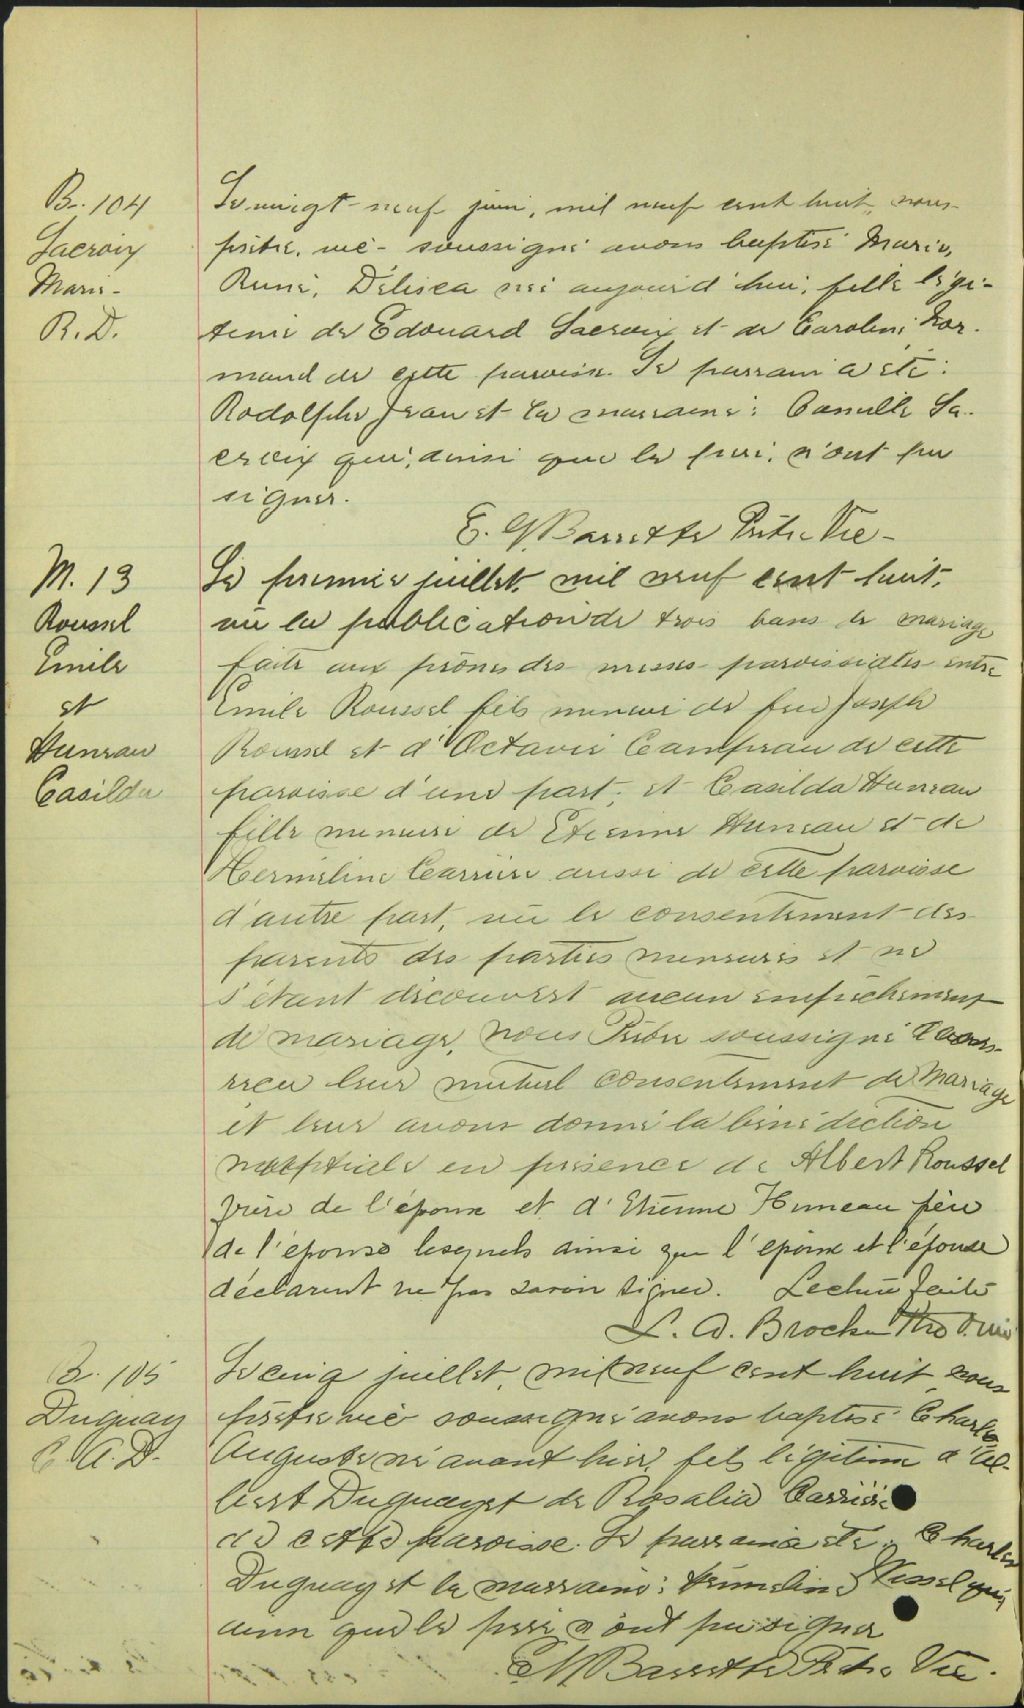 B. 104
Lacroix
Marie-
R. D.
Le vingt-neuf juin, mil neuf cent huit, nous
prêtre, vic- soussigné avons baptisé Marie,
Délisca née aujourd'hui, fille légi-
time de Edouard Lacroix et de Caroline Nor-
mand de cette paroisse. Le parrain a été:
Rodolphe Jean et la marraine: Camille La-
croix qui, ainsi que le père, n'ont pu
signer.
E. Barrette Prêtre Vic-
M. 13
Roussel
Emile
et
Huneau
Casilda
Le premier juillet, mil neuf cent huit,
vu la publication de trois bans de mariage
faite aux prônes des messes paroissiales entre
Emile Roussel fils mineur de feu Joseph
Roussel et d'Octavie Campeau de cette
paroisse d'une part; et Casilda Huneau
fille mineure de Etienne Huneau et de
Herméline Carrière aussi de cette paroisse
d'autre part, vu le consentement des
parents des parties mineures et ne
s'étant découvert aucun empêchement
de mariage, nous Prêtre soussigné avons
reçu leur mutuel consentement de mariage
et leur avons donné la bénédiction
nuptiale en présence de Albert Roussel
frère de l'époux et d'Etienne Huneau père
de l'épouse lesquels ainsi que l'époux et l'épouse
déclarent ne pas savoir signer. Lecture faite
L. A. Ptre
B. 105
Duguay
C. A. D.
Le cinq juillet, mil neuf cent huit, nous
prêtre vic soussigné avons baptisé Charles
Auguste né avant hier, fils légitime d'Al-
bert Duguay et de Rosalia Carrière
de cette paroisse. Le parrain a été: Charles
Duguay et la marraine: qui
ainsi que le père n'ont pu signer
Barrette Prêtre Vic.